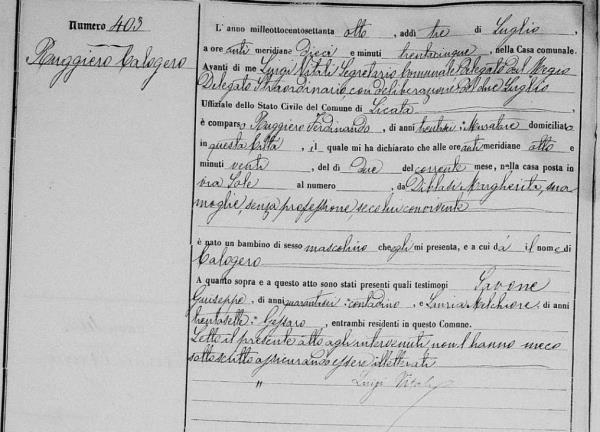 Numero 403
Ruggiero Calogero
L'anno milleottocentosettanta otto, addì tre di Luglio,
a ore anti meridiane dieci e minuti trentacinque, nella Casa comunale.
Avanti di me Luigi Vitali Segretario Comunale Delegato dal Regio
Delegato Straordinario, con deliberazione del due Luglio
Uffiziale dello Stato Civile del Comune di Licata
è comparso Ruggiero Ferdinando, di anni trentasei, domiciliato
in questa Città, il quale mi ha dichiarato che alle ore anti meridiane otto e
minuti venti, del dì due del corrente mese, nella casa posta in
via Sole al numero , da Diblasi Margherita, sua
moglie, senza professione, seco lui convivente
è nato un bambino di sesso mascolino che egli mi presenta, e a cui dà il nome di
Calogero
A quanto sopra e a questo atto sono stati presenti quali testimoni Savone
Giuseppe, di anni quarantasei contadino e Lauria Melchiore, di anni
trentasette Gessaro, entrambi residenti in questo Comune.
Letto il presente atto agli intervenuti, non l'hanno meco
sottoscritto assicurando essere illetterati
"
Luigi Vitali